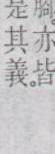 腳。亦皆
是其義。